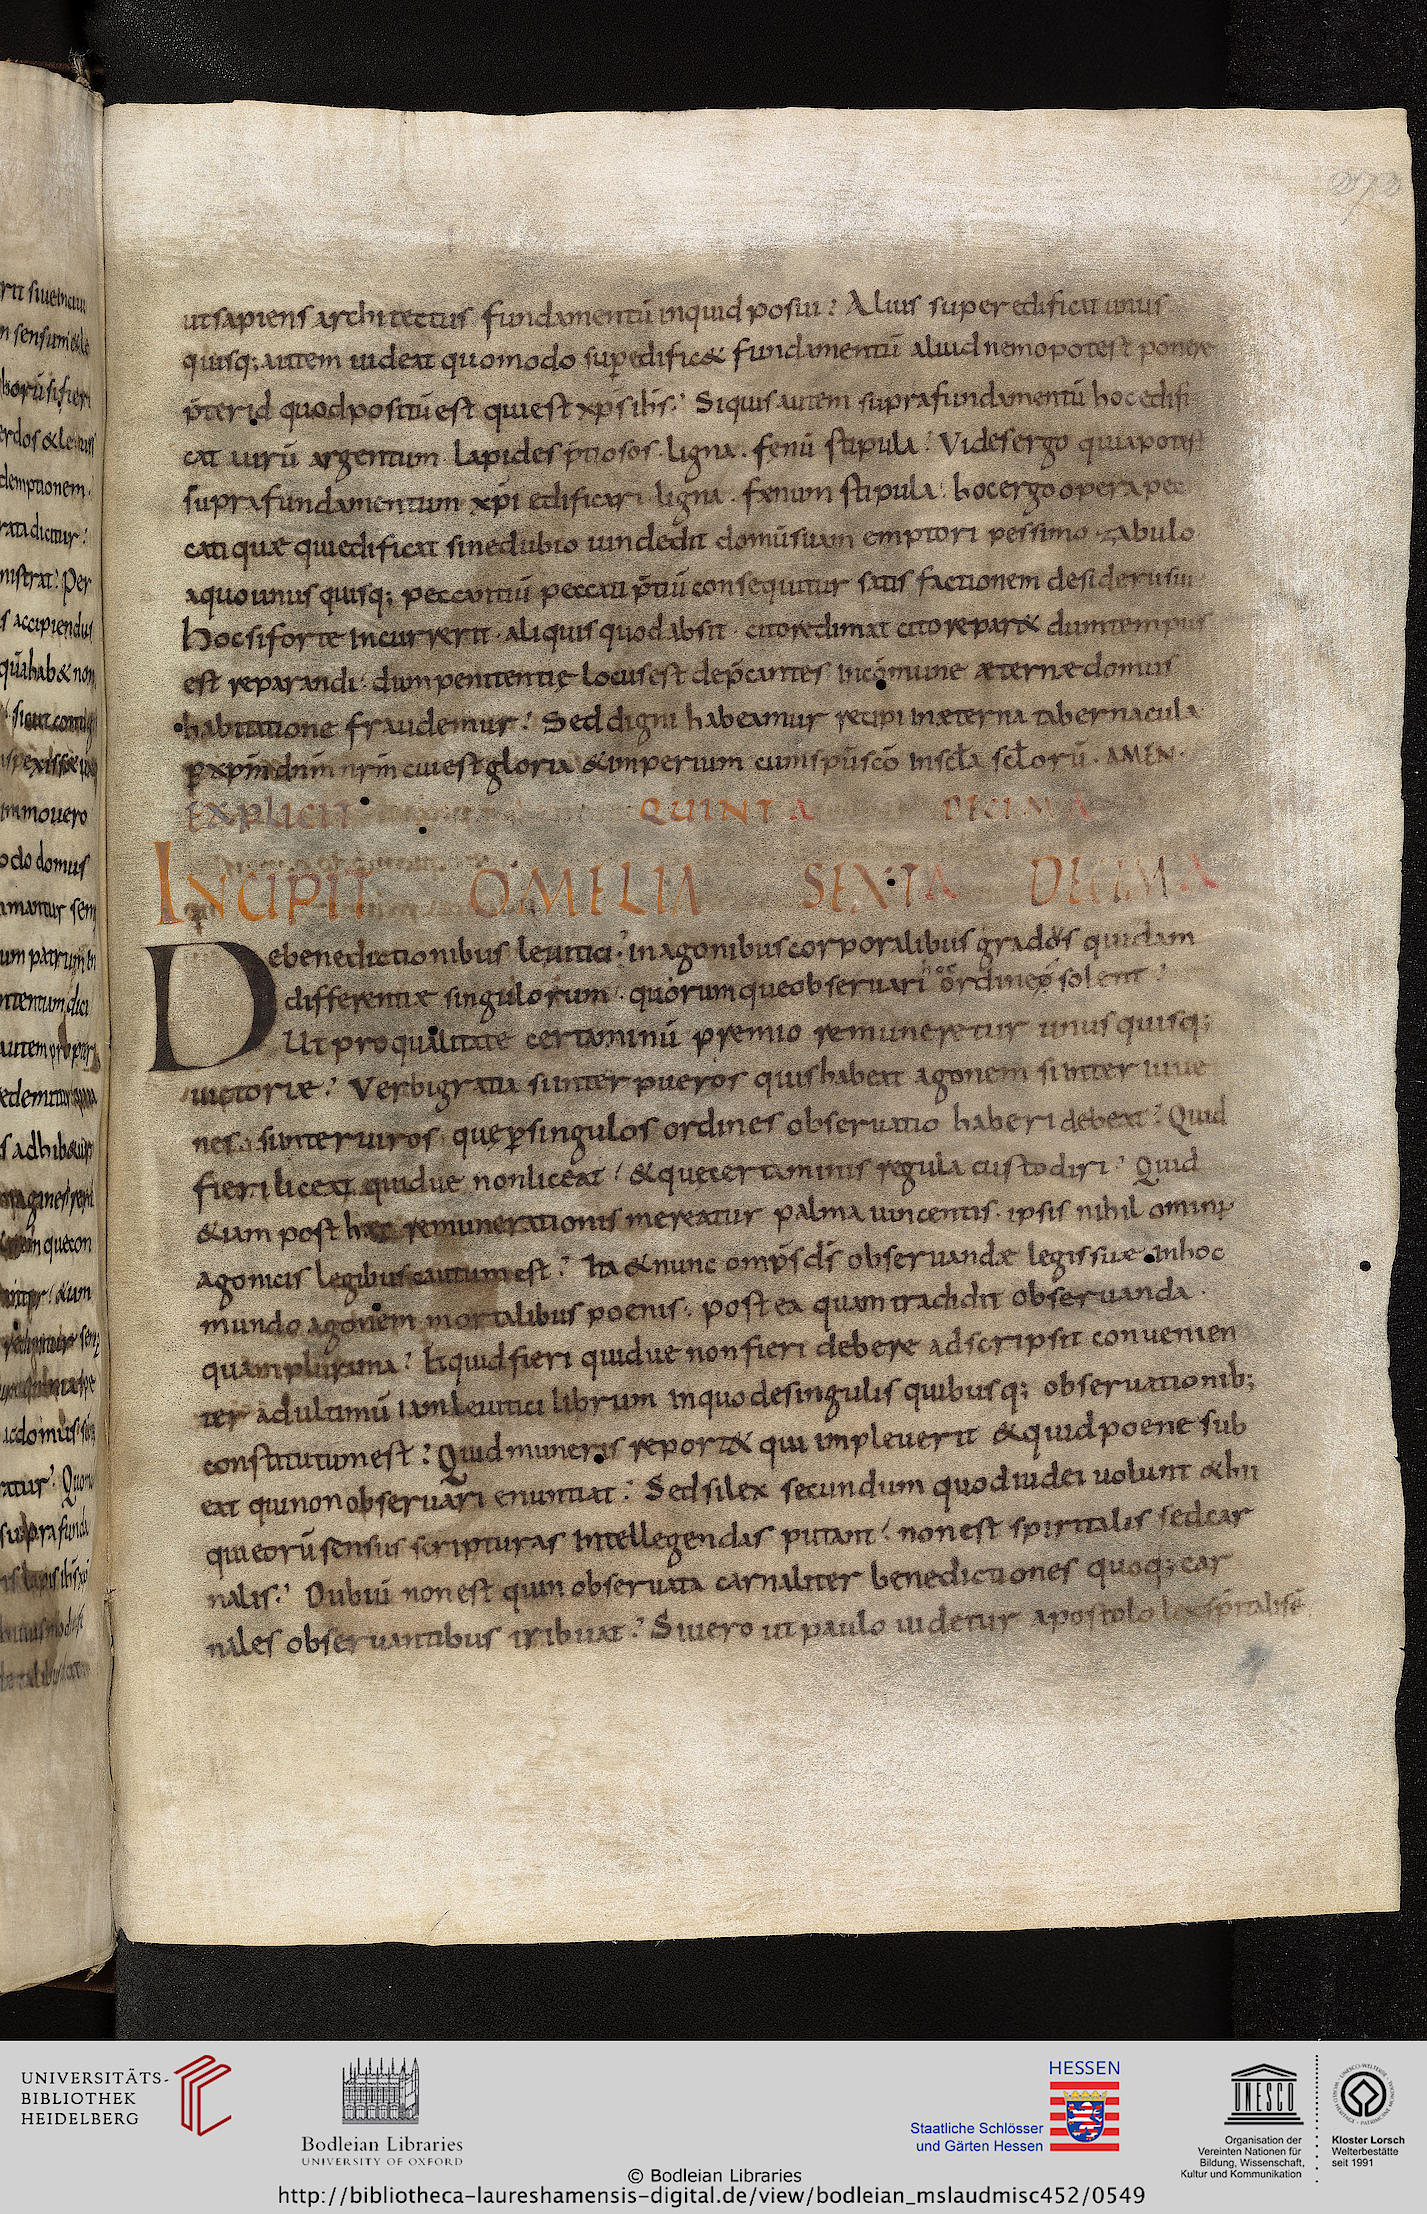 273
utsapiens architectus fundamentū inquid posui? Alius superedificat unus
quisq; autem uideat quomodo suꝑedific& fundamentū aliud nemo potest ponere
p̄ter id quod positū est qui est xp̄s ih̄s? Siquis autem supra fundamentū hoc edifi
cat aurū argentum lapides p̄tiosos · ligna · fenū stipula? Vides ergo quia potest
supra fundamentum xp̄i edificari ligna · fænum stipula? hoc ergo opera pec
cati quæ qui edificat sine dubio uindedit domū suam emptori pessimo zabulo
a quo unus quisq; peccantiū peccati p̄tiū consequitur satis factionem desiderii sui
Hoc si forte incurrerit · aliquis quod absit · cito redimat cito repar& dum tempus
est reparandi · dum penitentię locus est dep̄cantes in cōmune æternæ domus
habitatione fraudemur? Sed digni habeamur recipi in æterna tabernacula
ꝑ xp̄m dn̄m nr̄m cui est gloria & imperium cum sp̄u sc̄o in sc̄la sc̄lorū · AMEN ·
EXPLICIT QUINTA DECIMA
INCIPIT OMELIA SEXTA DECIMA
De benedictionibus leuitici? in agonibus corporalibus grados quidam
differentiæ singulorum · quorum queobseruari ordineo solent?
Ut pro qualitate certaminū premio remuneretur unus quisq;
uictoriæ? Verbi gratia si inter pueros quis habeat agonem si inter iuue
nes · si inter uiros · que ꝑ singulos ordines obseruatio haberi debeat? Quid
fieri liceat quidue non liceat? & que certaminis regula custodiri? Quid
&iam post hæc remunerationis mereatur palma uincentis · ipsis nihil ominꝰ
agonicis legibus cautum est? Ita & nunc omp̄s d̄s obseruandæ legis suæ in hoc
mundo agonem mortalibus poenis · post ea quam tradidit obseruanda ·
quam plurima? Et quid fieri quidue non fieri debere adscripsit conuenien
ter ad ultimū iam leuitici librum in quo de singulis quibusq; obseruationib;
constitutum est? Quid muneris report& qui impleuerit & quid poene sub
eat qui non obseruari enuntiat? Sed si lex secundum quod iudei uolunt & hii
qui eorū sensus scripturas intellegendas putant? non est spiritalis sed car
nalis? Dubiū non est quin obseruata carnaliter benedictiones quoq; car
nales obseruantibus tribuat? Si uero ut paulo uidetur apostolo lex sp̄italis ē
UNIVERSITÄTS-
BIBLIOTHEK
HEIDELBERG
Bodleian Libraries
UNIVERSITY OF OXFORD
HESSEN
Staatliche Schlösser
und Gärten Hessen
UNESCO
Organisation der
Vereinten Nationen für
Bildung, Wissenschaft,
Kultur und Kommunikation
Kloster Lorsch
Welterbestätte
seit 1991
© Bodleian Libraries
http://bibliotheca-laureshamensis-digital.de/view/bodleian_mslaudmisc452/0549